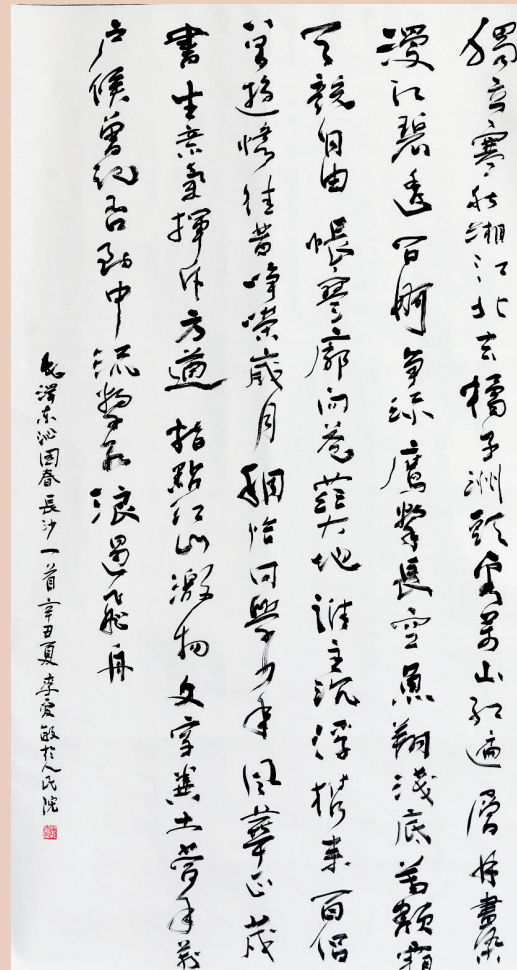 獨立寒秋湘江北去橘子洲頭看萬山紅遍層林盡染
漫江碧透百舸爭流鷹擊長空魚翔淺底萬類霜
天競自由悵寥廓問蒼茫大地誰主沉浮攜來百侶
曾遊憶往昔崢嶸歲月稠恰同學少年風華正茂
書生意氣揮斥方遒指點江山激揚文字糞土當年萬
户侯曾記否到中流擊水浪遏飛舟
毛澤東沁園春長沙一首辛丑夏李愛敏於人民院